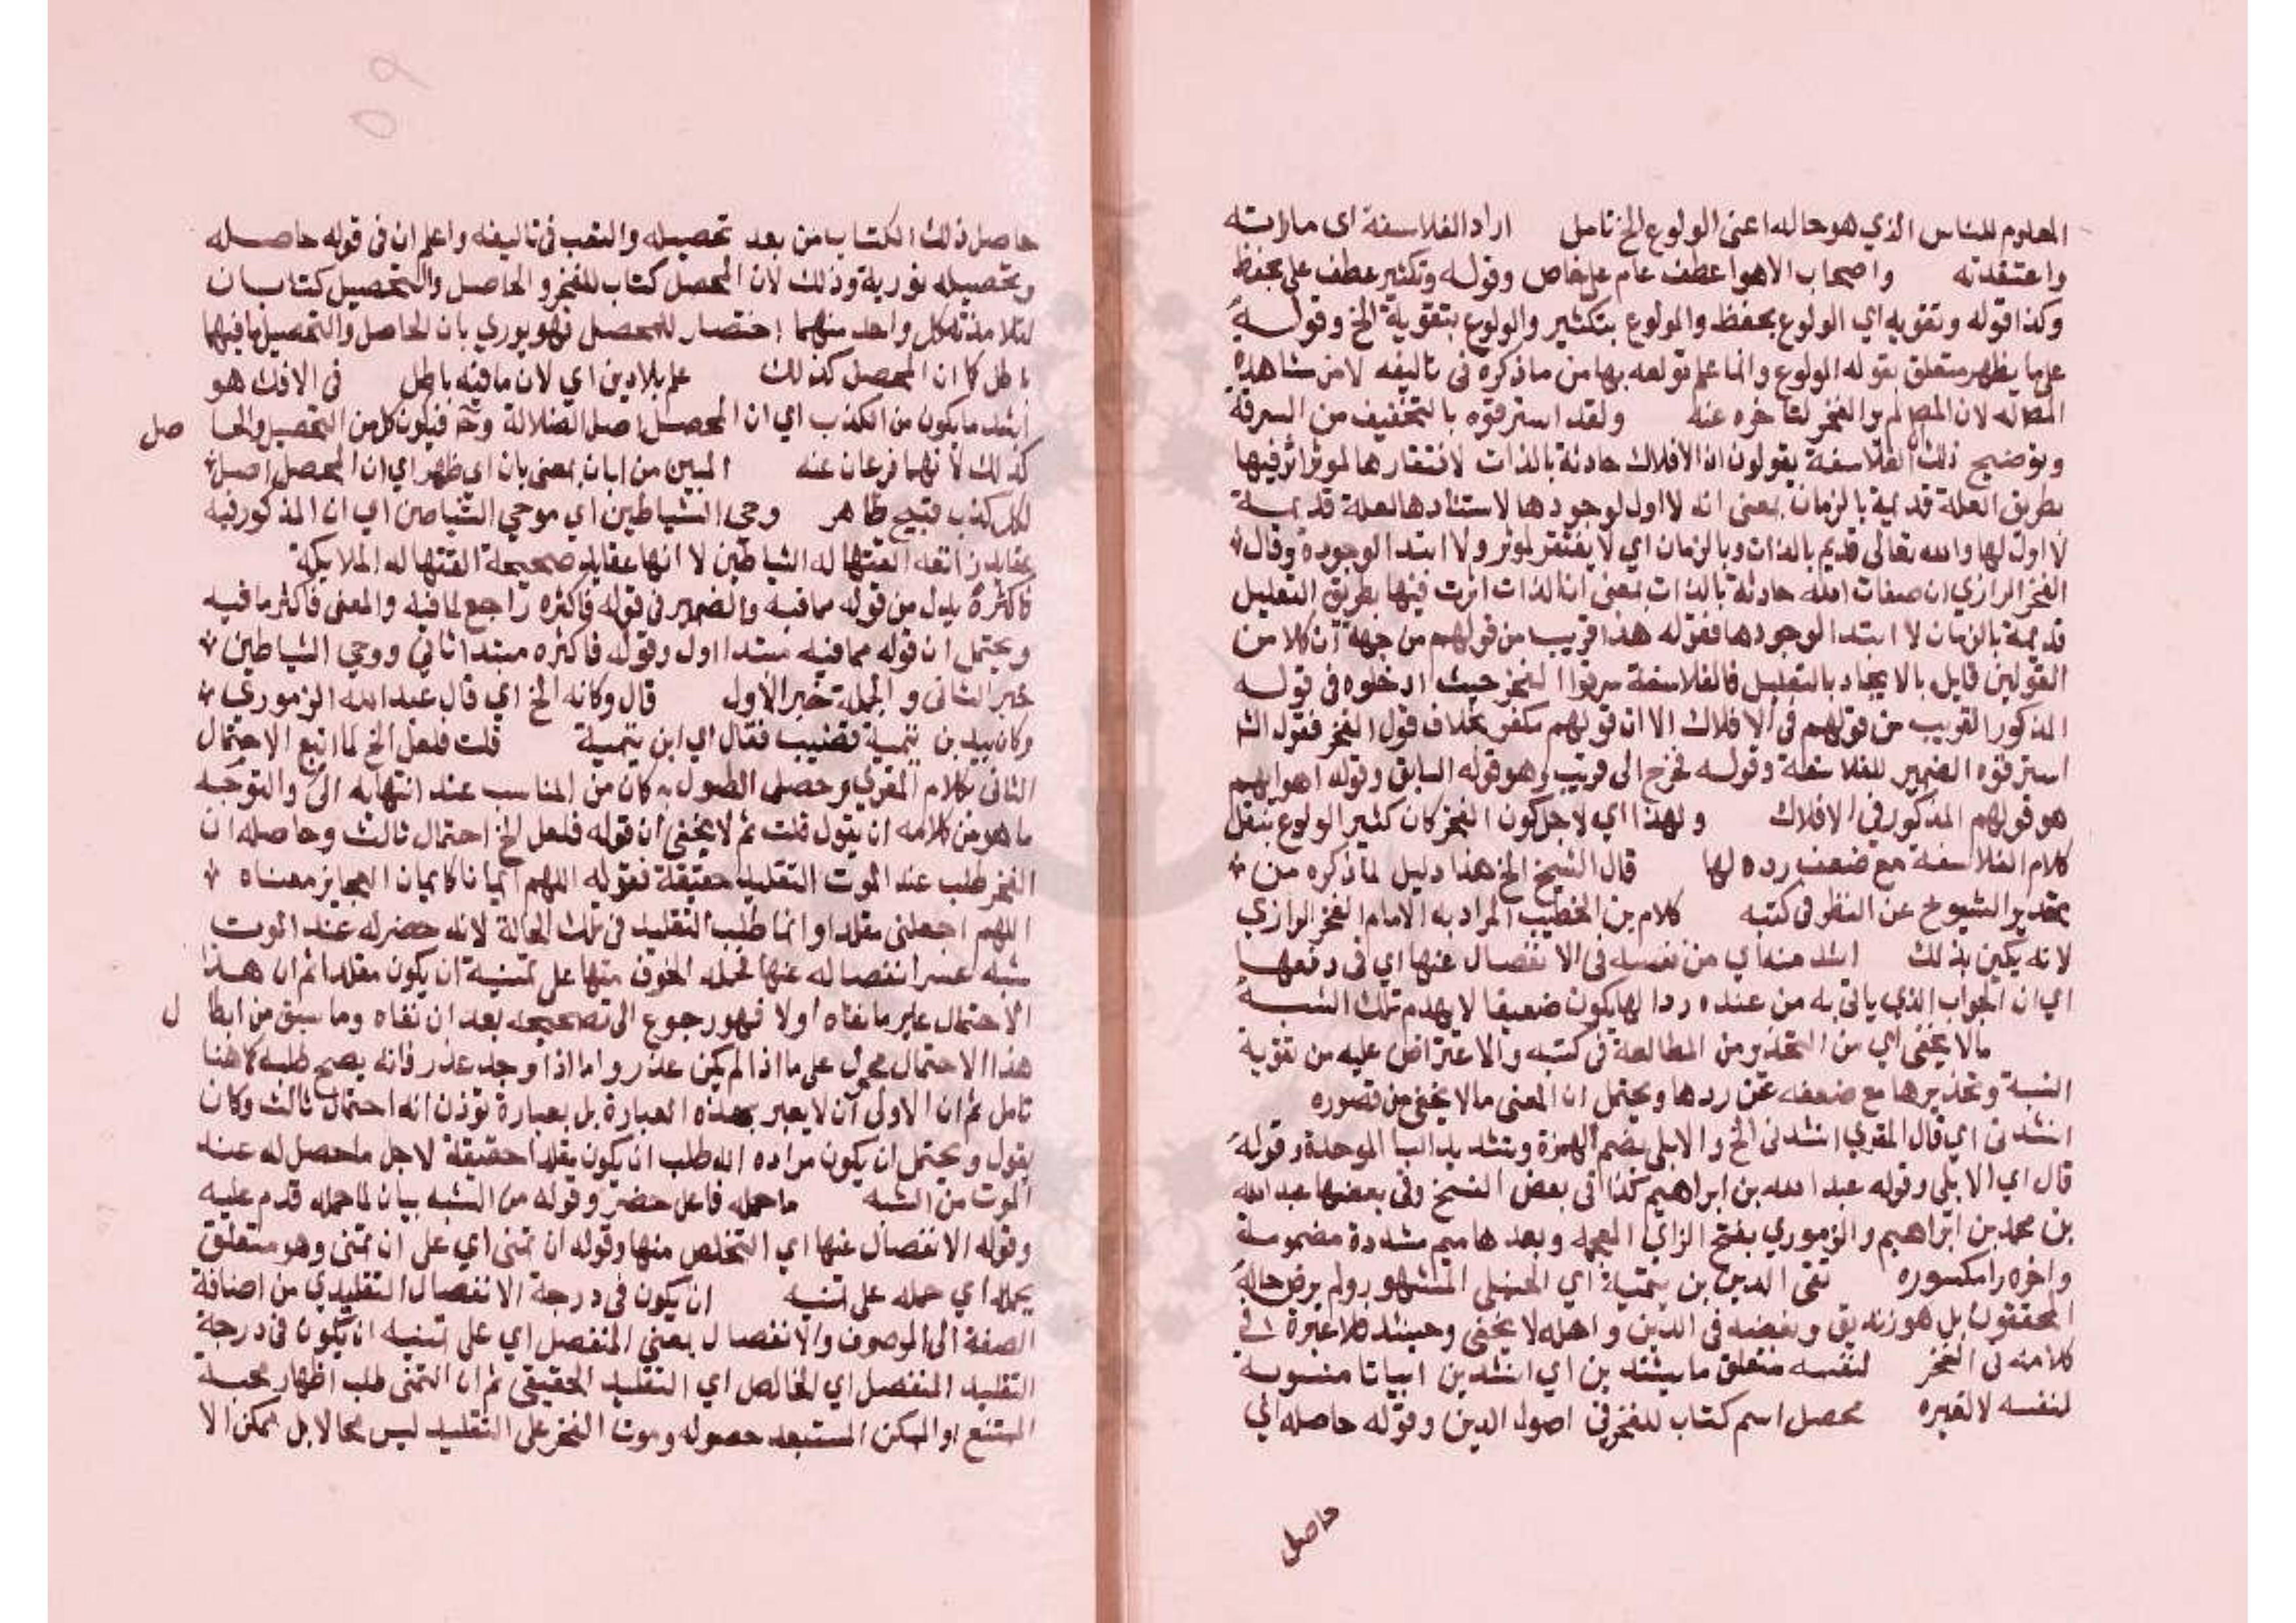 المعلوم للناس الذي هو حاله اعنى الولوع الخ تامل اراد الفلاسفة اى ما راته
واعتقدته واصحاب الاهوا عطف عام على خاص وقوله وتكثير عطف على بحفظ
وكذا قوله وتقويه اي الولوع بحفظ والولوع بتكثير والولوع بتقوية الخ وقوله
على ما يظهر متعلق بقوله الولوع وانما علم تولعه بها من ما ذكره فى تاليفه لا من مشاهدة
المص له لان المص لم ير الفخر لتاخره عنه ولقد استرقوه بالتخفيف من السرقة
وتوضيح ذلك ان الفلاسفة يقولون ان الأفلاك حادثة بالذات لافتقارها لموثر اثر فيها
بطريق العلة قديمة بالزمان بمعنى انه لا اول لوجودها لاستنادها لعلة قديمة
لا اول لها والله تعالى قديم بالذات وبالزمان اي لا يفتقر لموثر ولا ابتدا لوجوده وقال
الفخر الرازي ان صفات الله حادثة بالذات بمعنى ان الذات اثرت فيها بطريق التعليل
قديمة بالزمان لا ابتدا لوجودها فقوله هذا قريب من قولهم من جهة ان كلا من
القولين قايل بالايجاد بالتعليل فالفلاسفة سرقوا الفخر حيث ادخلوه فى قوله
المذكور القريب من قولهم فى الافلاك الا ان قولهم مكفر بخلاف قول الفخر فقول الشا
استرقوه الضمير للفلاسفة وقوله فخرج الى قريب وهو قوله السابق وقوله اهوايهم
هو قولهم المذكور في الافلاك ولهذا اي لاجل كون الفخر كان كثير الولوع بنقل
كلام الفلاسفة مع ضعف رده لها قال الشيخ الخ هذا دليل لما ذكره من
تحذير الشيوخ عن النظر فى كتبه كلام بن الخطيب المراد به الامام الفخر الرازي
لانه يكنى بذلك اشد منه اي من نفسه فى الانفصال عنها اي فى دفعها
اي ان الجواب الذي ياتى به من عنده ردا لها يكون ضعيفا لا يهدم تلك الشبه
ما لا يخفى اي من التحذير من المطالعة فى كتبه والاعتراض عليه من تقوية
الشبة وتحذيرها مع ضعفه عن ردها ويحتمل ان المعنى ما لا يخفى من قصوره
انشدنى اي قال المقري انشدنى الخ والابلى بضم الهمزة وبتشديد البا الموحدة وقوله
قال اي الابلى وقوله عبد الله بن ابراهيم كذا فى بعض النسخ وفى بعضها عبد الله
بن محمد بن ابراهيم والزموري بفتح الزاي المعجمه وبعدها ميم مشددة مضمومة
واخره را مكسوره تقى الدين بن تيمية اي الحنبلى المشهور ولم يرض حاله
المحققون بل هو زنديق وبغضه فى الدين واهله لا يخفى وحينئذ فلا عبرة
كلامه فى الفخر لنفسه متعلق ما بينشدنى اي انشدنى ابياتا منسوبة
لنفسه لا لغيره محصل اسم كتاب للفخر فى اصول الدين وقوله حاصله اي
حاصل
حاصل ذلك الكتاب من بعد تحصيله والتعب فى تاليفه واعلم ان فى قوله حاصله
وتحصيله تورية وذلك لان المحصل كتاب للفخر والحاصل والتحصيل كتابان
لتلامذته كل واحد منهما اختصار للمحصل فهو يوري بان الحاصل والتحصيل ما فيهما
باطل كما ان المحصل كذلك علم بلا دين اي لان ما فيه باطل فى الافك هو
اشد ما يكون من الكذب اي ان المحصل اصل الضلالة وح فيكون كل من التحصيل والحا صل
كذلك لانهما فرعان عنه المبين من ابان بمعنى بان اي ظهر اي ان المحصل اصل
لكل كذب قبيح ظاهر وحى الشياطين اي موحي الشياطين اي ان المذكور فيه
عقايد زائغه القتها له الشياطين لا انها عقايد صحيحة القتها له الملايكة
فاكثره بدل من قوله مما فيه والضمير فى قوله فاكثره راجع لما فيه والمعنى فاكثر ما فيه
ويحتمل ان قوله مما فيه مبتدا اول وقوله فاكثره مبتدا ثاني ووحي الشياطين
خبر الثانى والجملة خبر الأول قال وكانه الخ اي قال عبد الله الزموري
وكان بيد بن تيمية قضيب فقال اي ابن تيمية قلت فلعل الخ لما اتبع الاحتمال
الثانى بكلام المقري وحصل الطول به كان من المناسب عند انتهايه الى والتوجه
ما هو من كلامه ان يقول قلت ثم لا يخفى ان قوله فلعل الخ احتمال ثالث وحاصله ان
الفخر طلب عند الموت التقليد حقيقة فقوله اللهم ايمانا كايمان العجايز معناه
اللهم اجعلنى مقلدا وانما طلب التقليد فى تلك الحالة لانه حضر له عند الموت
شبه عسر انفصاله عنها فحمله الخوف منها على تمنيه ان يكون مقلدا ثم ان هذا
الاحتمال عير ما نفاه اولا فهو رجوع الى تصحيحه بعد ان نفاه وما سبق من ابطا ل
هذا الاحتمال محمول على ما اذا لم يكن عذر واما اذا وجد عذر فانه يصح طلبه كما هنا
تامل ثم ان الاولى ان لا يعبر بهذه العبارة بل بعبارة توذن انه احتمال ثالث وكان
يقول ويحتمل ان يكون مراده انه طلب ان يكون مقلدا حقيقة لاجل ما حصل له عند
الموت من الشبه ما حمله فاعل حضر وقوله من الشبه بيان لما حمله قدم عليه
وقوله الانفصال عنها اي التخلص منها وقوله ان تمنى اي على ان تمنى وهو متعلق
بحمله اي حمله على تمنيه ان يكون فى درجة الانفصال التقليدي من اضافة
الصفة الى الموصوف والانفصال بمعنى المنفصل اي على تمنيه ان يكون فى درجة
التقليد المنفصل اي الخالص اي التقليد الحقيقى ثم ان التمنى طلب اظهار محبة
الممتنع او الممكن المستبعد حصوله وموت الفخر على التقليد ليس محالا بل ممكن الا